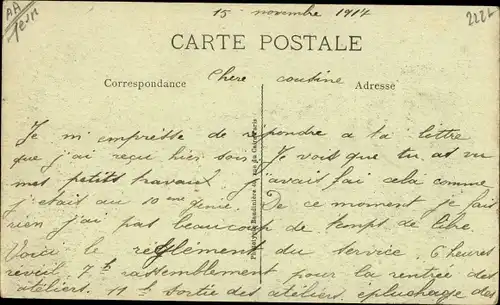 15 novembre 1917
2221
CARTE POSTALE
Correspondance
Adresse
Chere cousine
Je m'empresse de repondre a ta lettre
que j'ai reçu hier soir Je vois que tu as vu
mes petits travaux j'avais fai cela comme
j'etais au 10 me genie. De ce moment je fais
rien j'ai pas beaucoup de temps de libre.
Voici le reglement du service 6 heures
réveil, 7h rassemblement pour la rentrée des
ateliers. 11h sortie des ateliers epluchage des